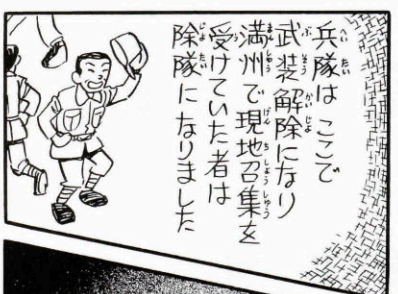 兵隊はここで
武装解除になり
満州で現地召集を
受けていた者は
除隊になりました